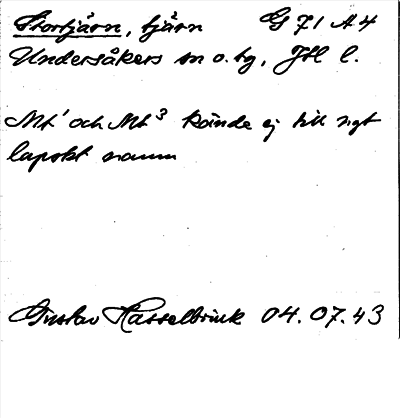 Stortjärn, tjärn G 71 A 4
Undersåkers sn o. tg, Jtl l.
Mt¹ och Mt³ kände ej till ngt
lapskt namn
Gustav Hasselbrink 04.07.43